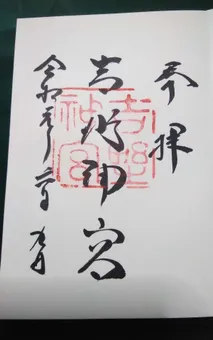 奉拝
吉野神宮
令和元年
吉野神宮